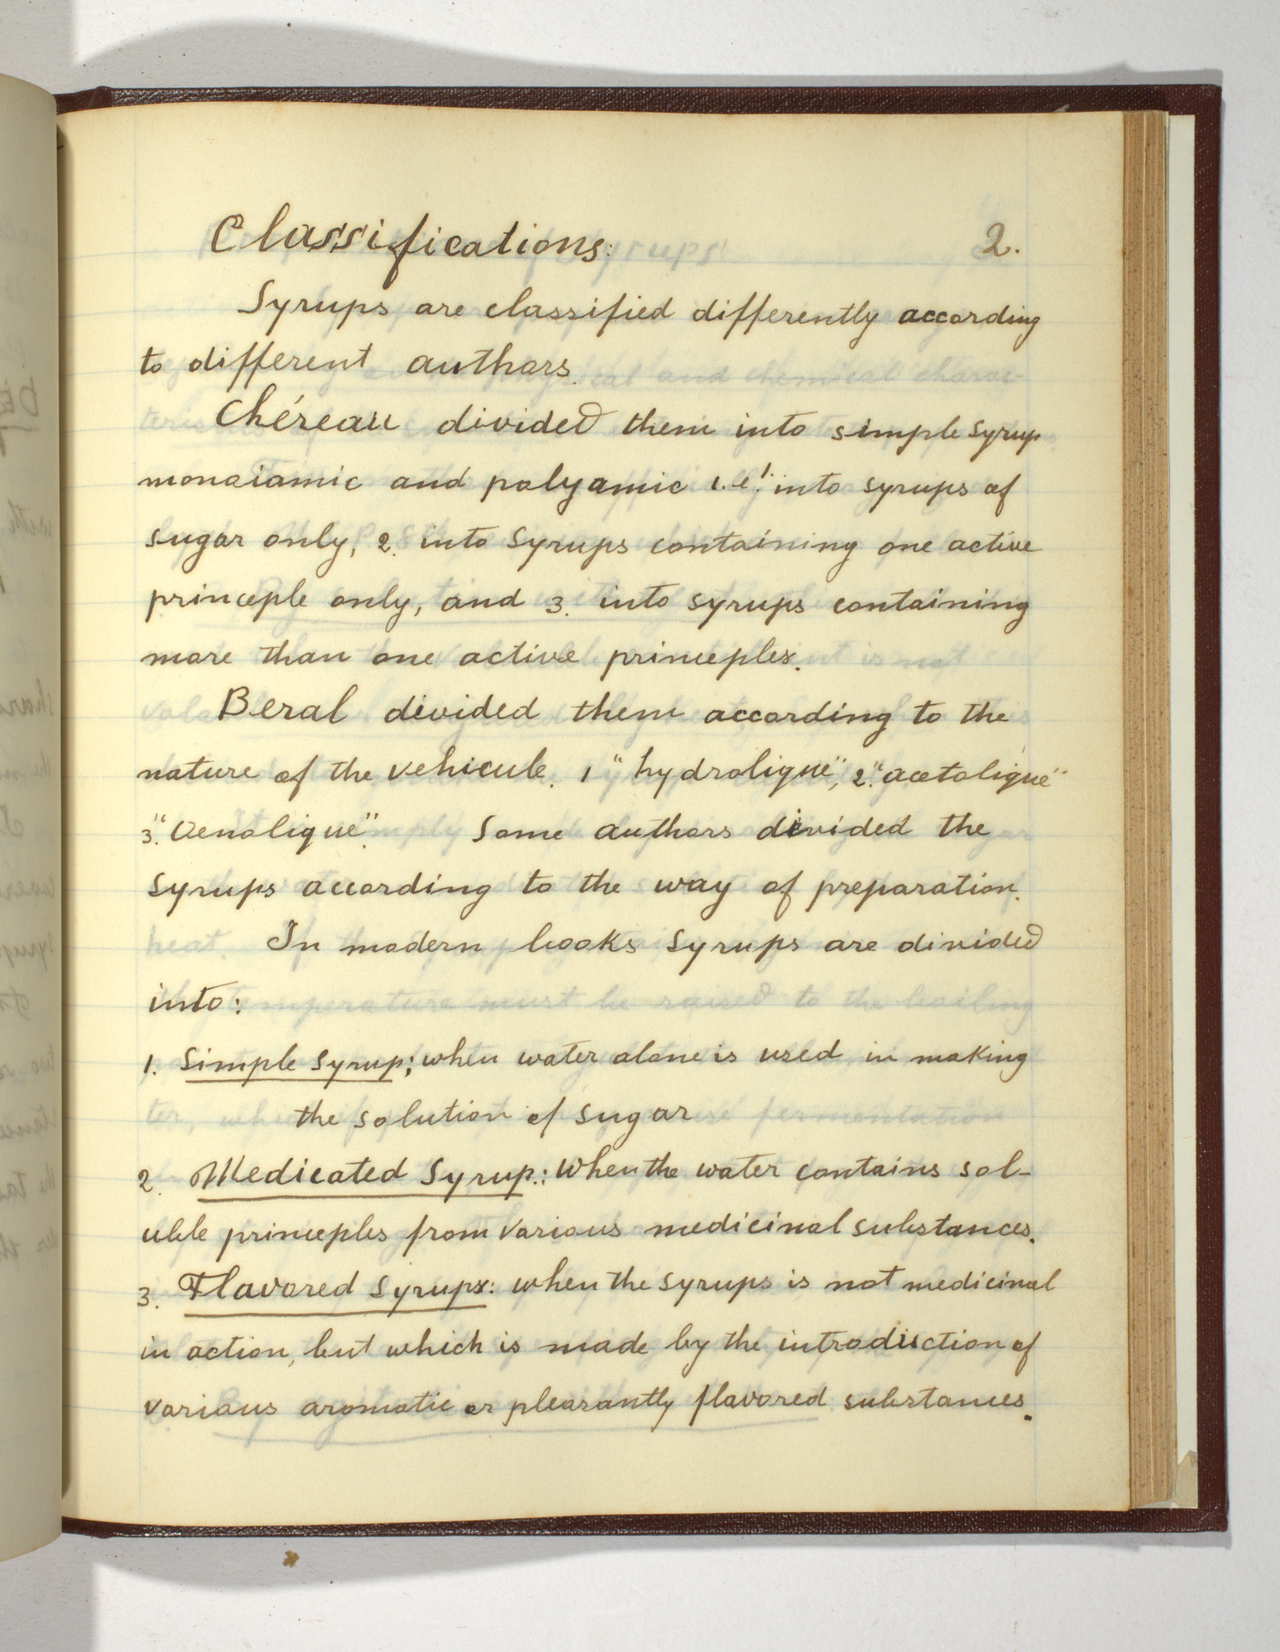 Classifications: 2.
Syrups are classified differently according
to different authors.
Chéreau divided them into simple syrup
monoiamic and polyamic i.e. 1. into syrups of
sugar only, 2. into syrups containing one active
principle only, and 3. into syrups containing
more than one active principles.
Beral divided them according to the
nature of the vehicule. 1 "hydrolique", 2. "acetolique"
3. "Oenolique". Some authors divided the
syrups according to the way of preparation.
In modern books syrups are divided
into:
1. Simple Syrup; when water alone is used in making
the solution of sugar
2. Medicated Syrup.: When the water contains sol-
uble principles from various medicinal substances.
3. Flavored Syrups: when the syrups is not medicinal
in action, but which is made by the introduction of
various aromatic or pleasantly flavored substances.